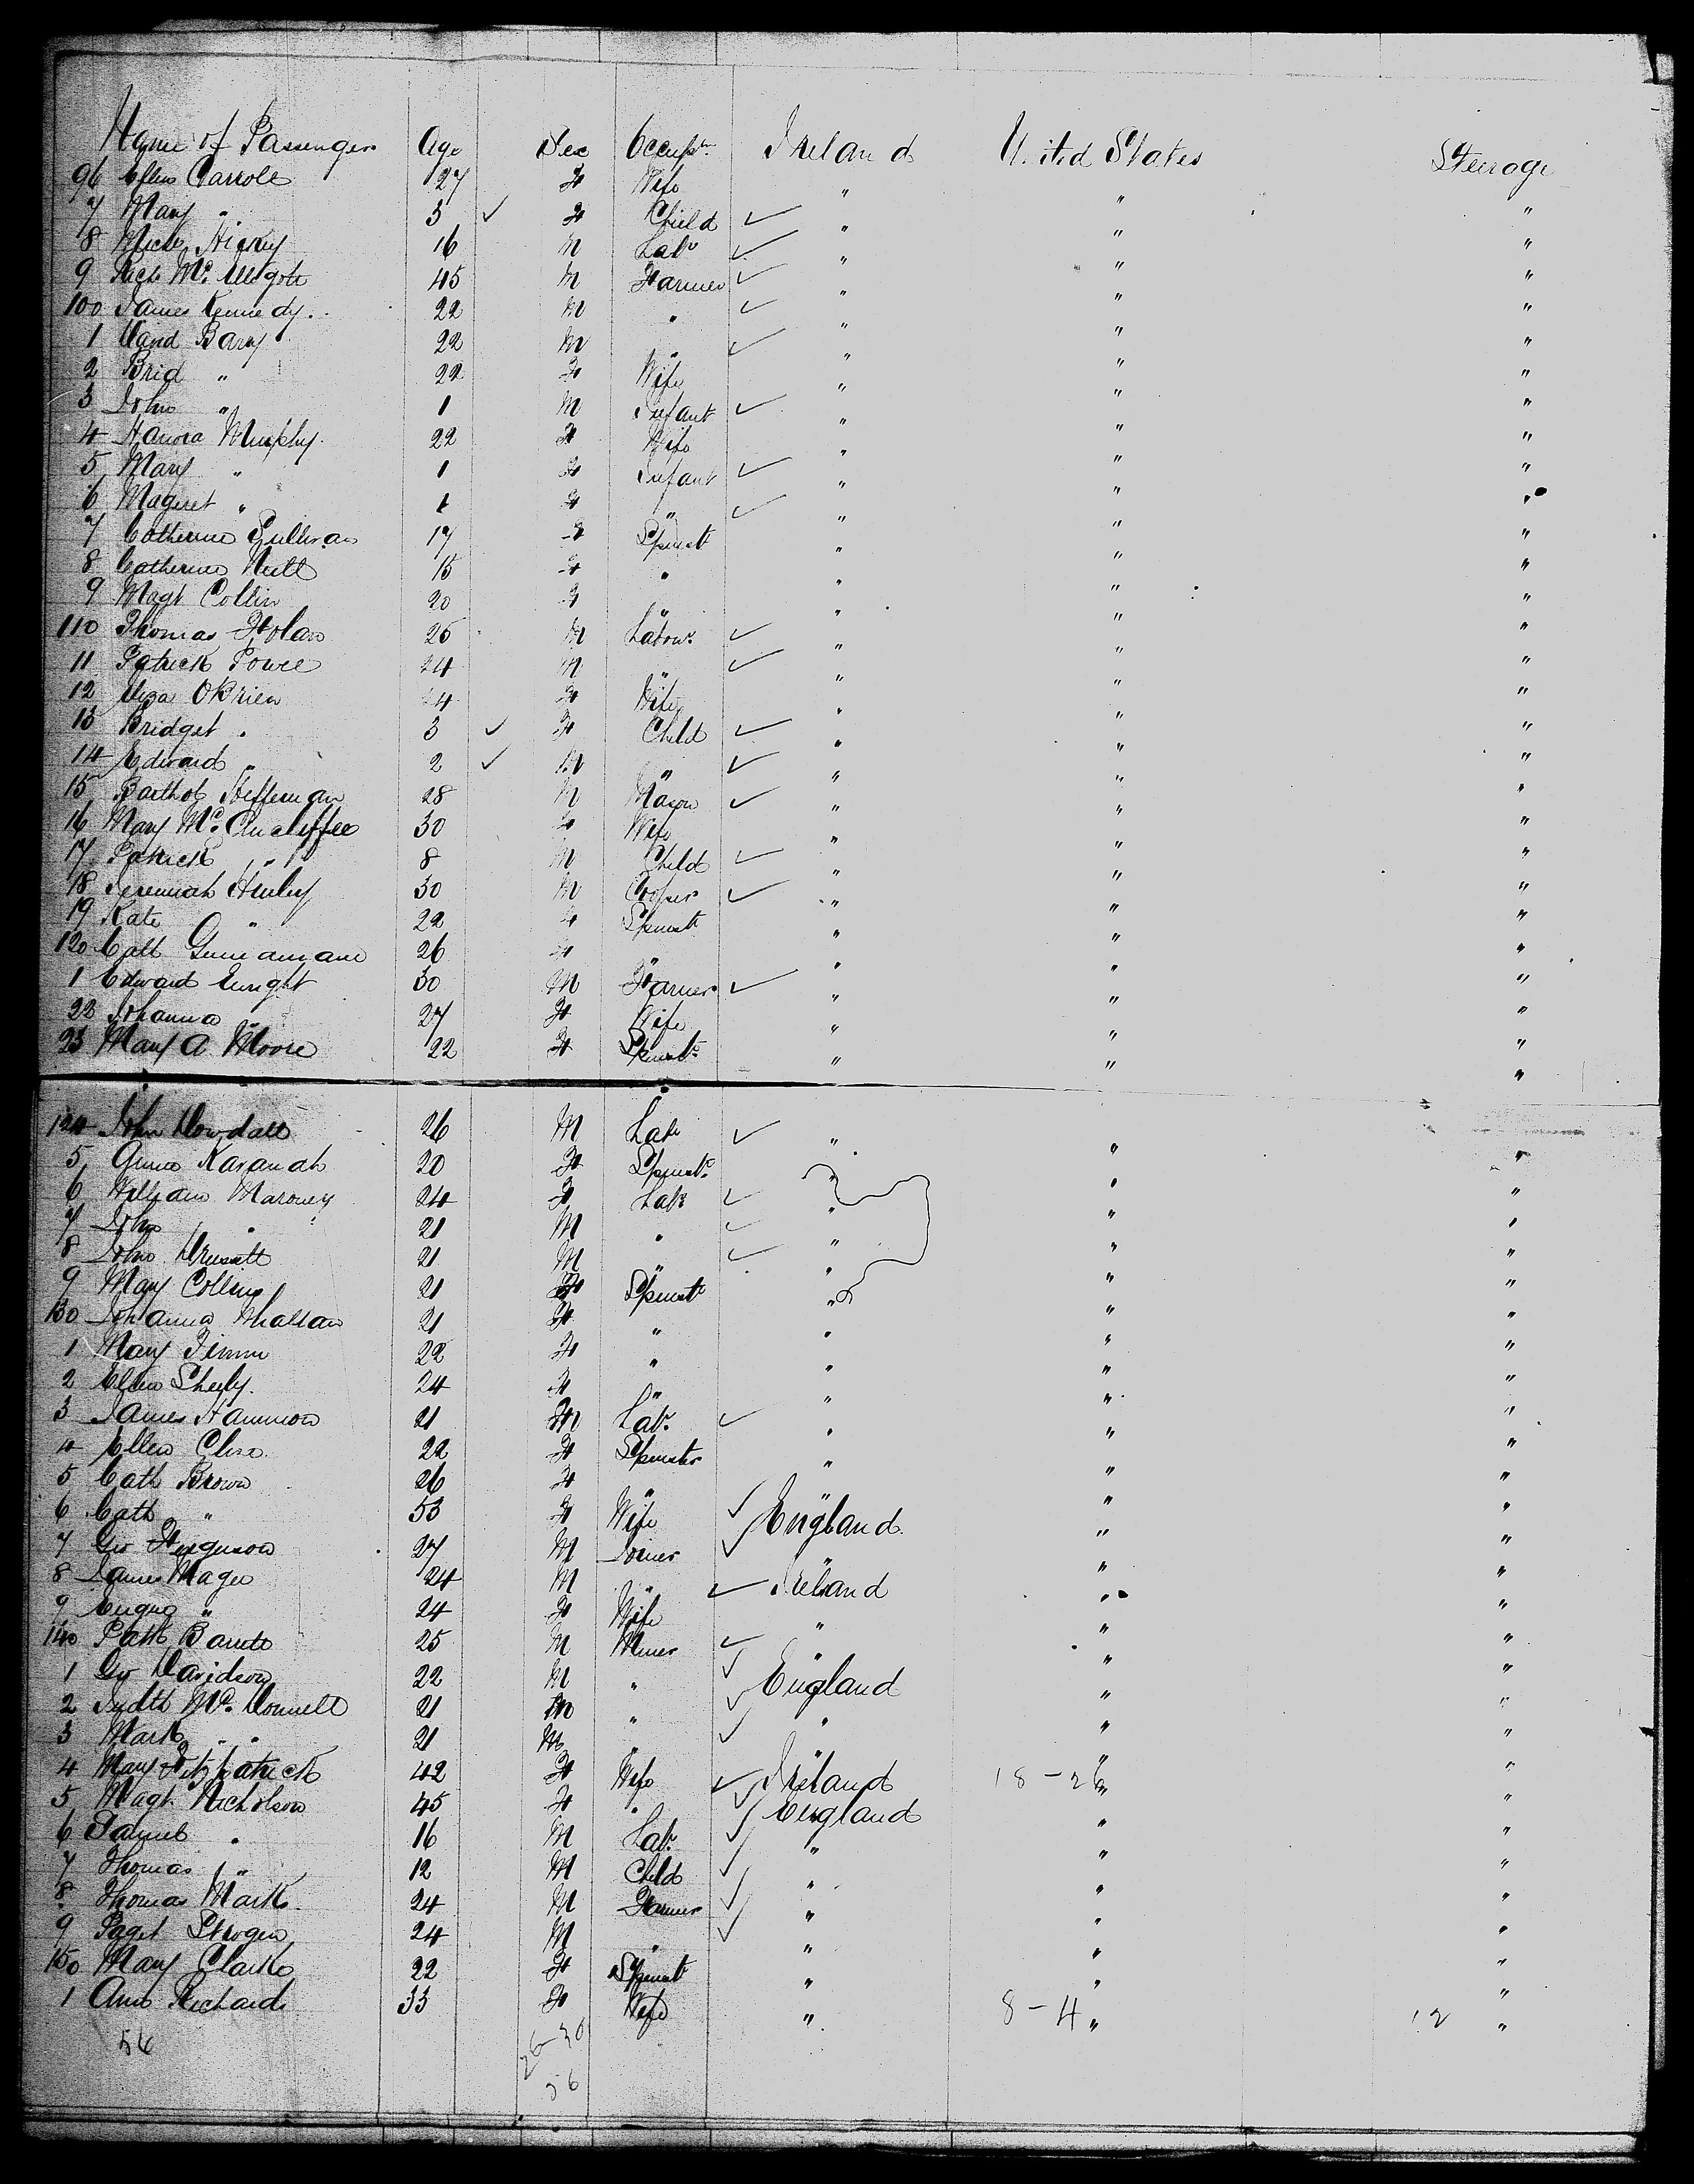 Name of Passenger Age Sex Occupn. Ireland United States Steerage
96 Ellen Carroll 27 F Wife " " "
7 Mary " 3 ✓ F Child ✓ " " "
8 Hickey 16 M Labr ✓ " " "
9 Mc 45 M Farmer ✓ " " "
100 James Kennedy 22 M " ✓ " " "
1 David Barry 22 M " ✓ " " "
2 Brid " 22 F Wife " " "
3 John " 1 M Infant ✓ " " "
4 Hanora Murphy 22 F Wife " " "
5 Mary " 1 F Infant ✓ " " "
6 Mageret " 1 F " ✓ " " "
7 Catherine Sullivan 17 F Spinst " " "
8 Catherine 15 F " " " "
9 Magt Collin 20 F " " " "
110 Thomas 25 M Labour ✓ " " "
11 Patrick Power 24 M " ✓ " " "
12 Eliza OBrien 24 F Wife " " "
13 Bridget " 3 ✓ F Child ✓ " " "
14 Edward " 2 ✓ M " ✓ " " "
15 Barthol Heffernan 28 M Mason ✓ " " "
16 Mary Mc 30 F Wife " " "
17 Patrick " " 8 M Child ✓ " " "
18 Jeremiah 30 M Cooper ✓ " " "
19 Kate " 22 F Spinst " " "
120 Cath 26 F " " " "
1 Edward Enright 30 M Farmer ✓ " " "
22 Johanna " 27 F Wife " " "
23 Mary A Moore 22 F Spinst " " "
124 John Dowdall 26 M Labr ✓ " " "
5 Kavanah 20 F Spinstr " " "
6 William Maroney 24 F Labr ✓ " " "
7 John " 21 M " ✓ " " "
8 John 21 M " ✓ " " "
9 Mary Collins 21 F Spinst " " "
130 Johanna 21 F " " " "
1 Mary 22 F " " " "
2 Ellen Sheehy 24 F " " " "
3 James Hammon 21 M Labr ✓ " " "
4 Ellen 22 F Spinster " " "
5 Cath Brown 26 F " " " "
6 Cath " 53 F Wife ✓ England " "
7 Geo Ferguson 27 M Joiner ✓ " " "
8 James Magee 24 M " ✓ Ireland " "
9 " 24 F Wife " " "
140 Patk Barrett 25 M Miner ✓ " " "
1 Geo Davidson 22 M " ✓ England " "
2 Mc Donnell 21 M " ✓ " " "
3 Mark " " 21 M " ✓ " " "
4 Mary Fitzpatrick 42 F Wife ✓ Ireland 18 - 26 " "
5 Magt Nicholson 45 F " ✓ England " "
6 Samuel " 16 M Labr ✓ " " "
7 Thomas " 12 M Child ✓ " " "
8 Thomas Mark 24 M Farmer ✓ " " "
9 24 M " ✓ " " "
150 Mary Clarke 22 F Spinst " " "
1 Ann Richard 33 F Wife " 8 - 4 " 12 "
56 26-30
56